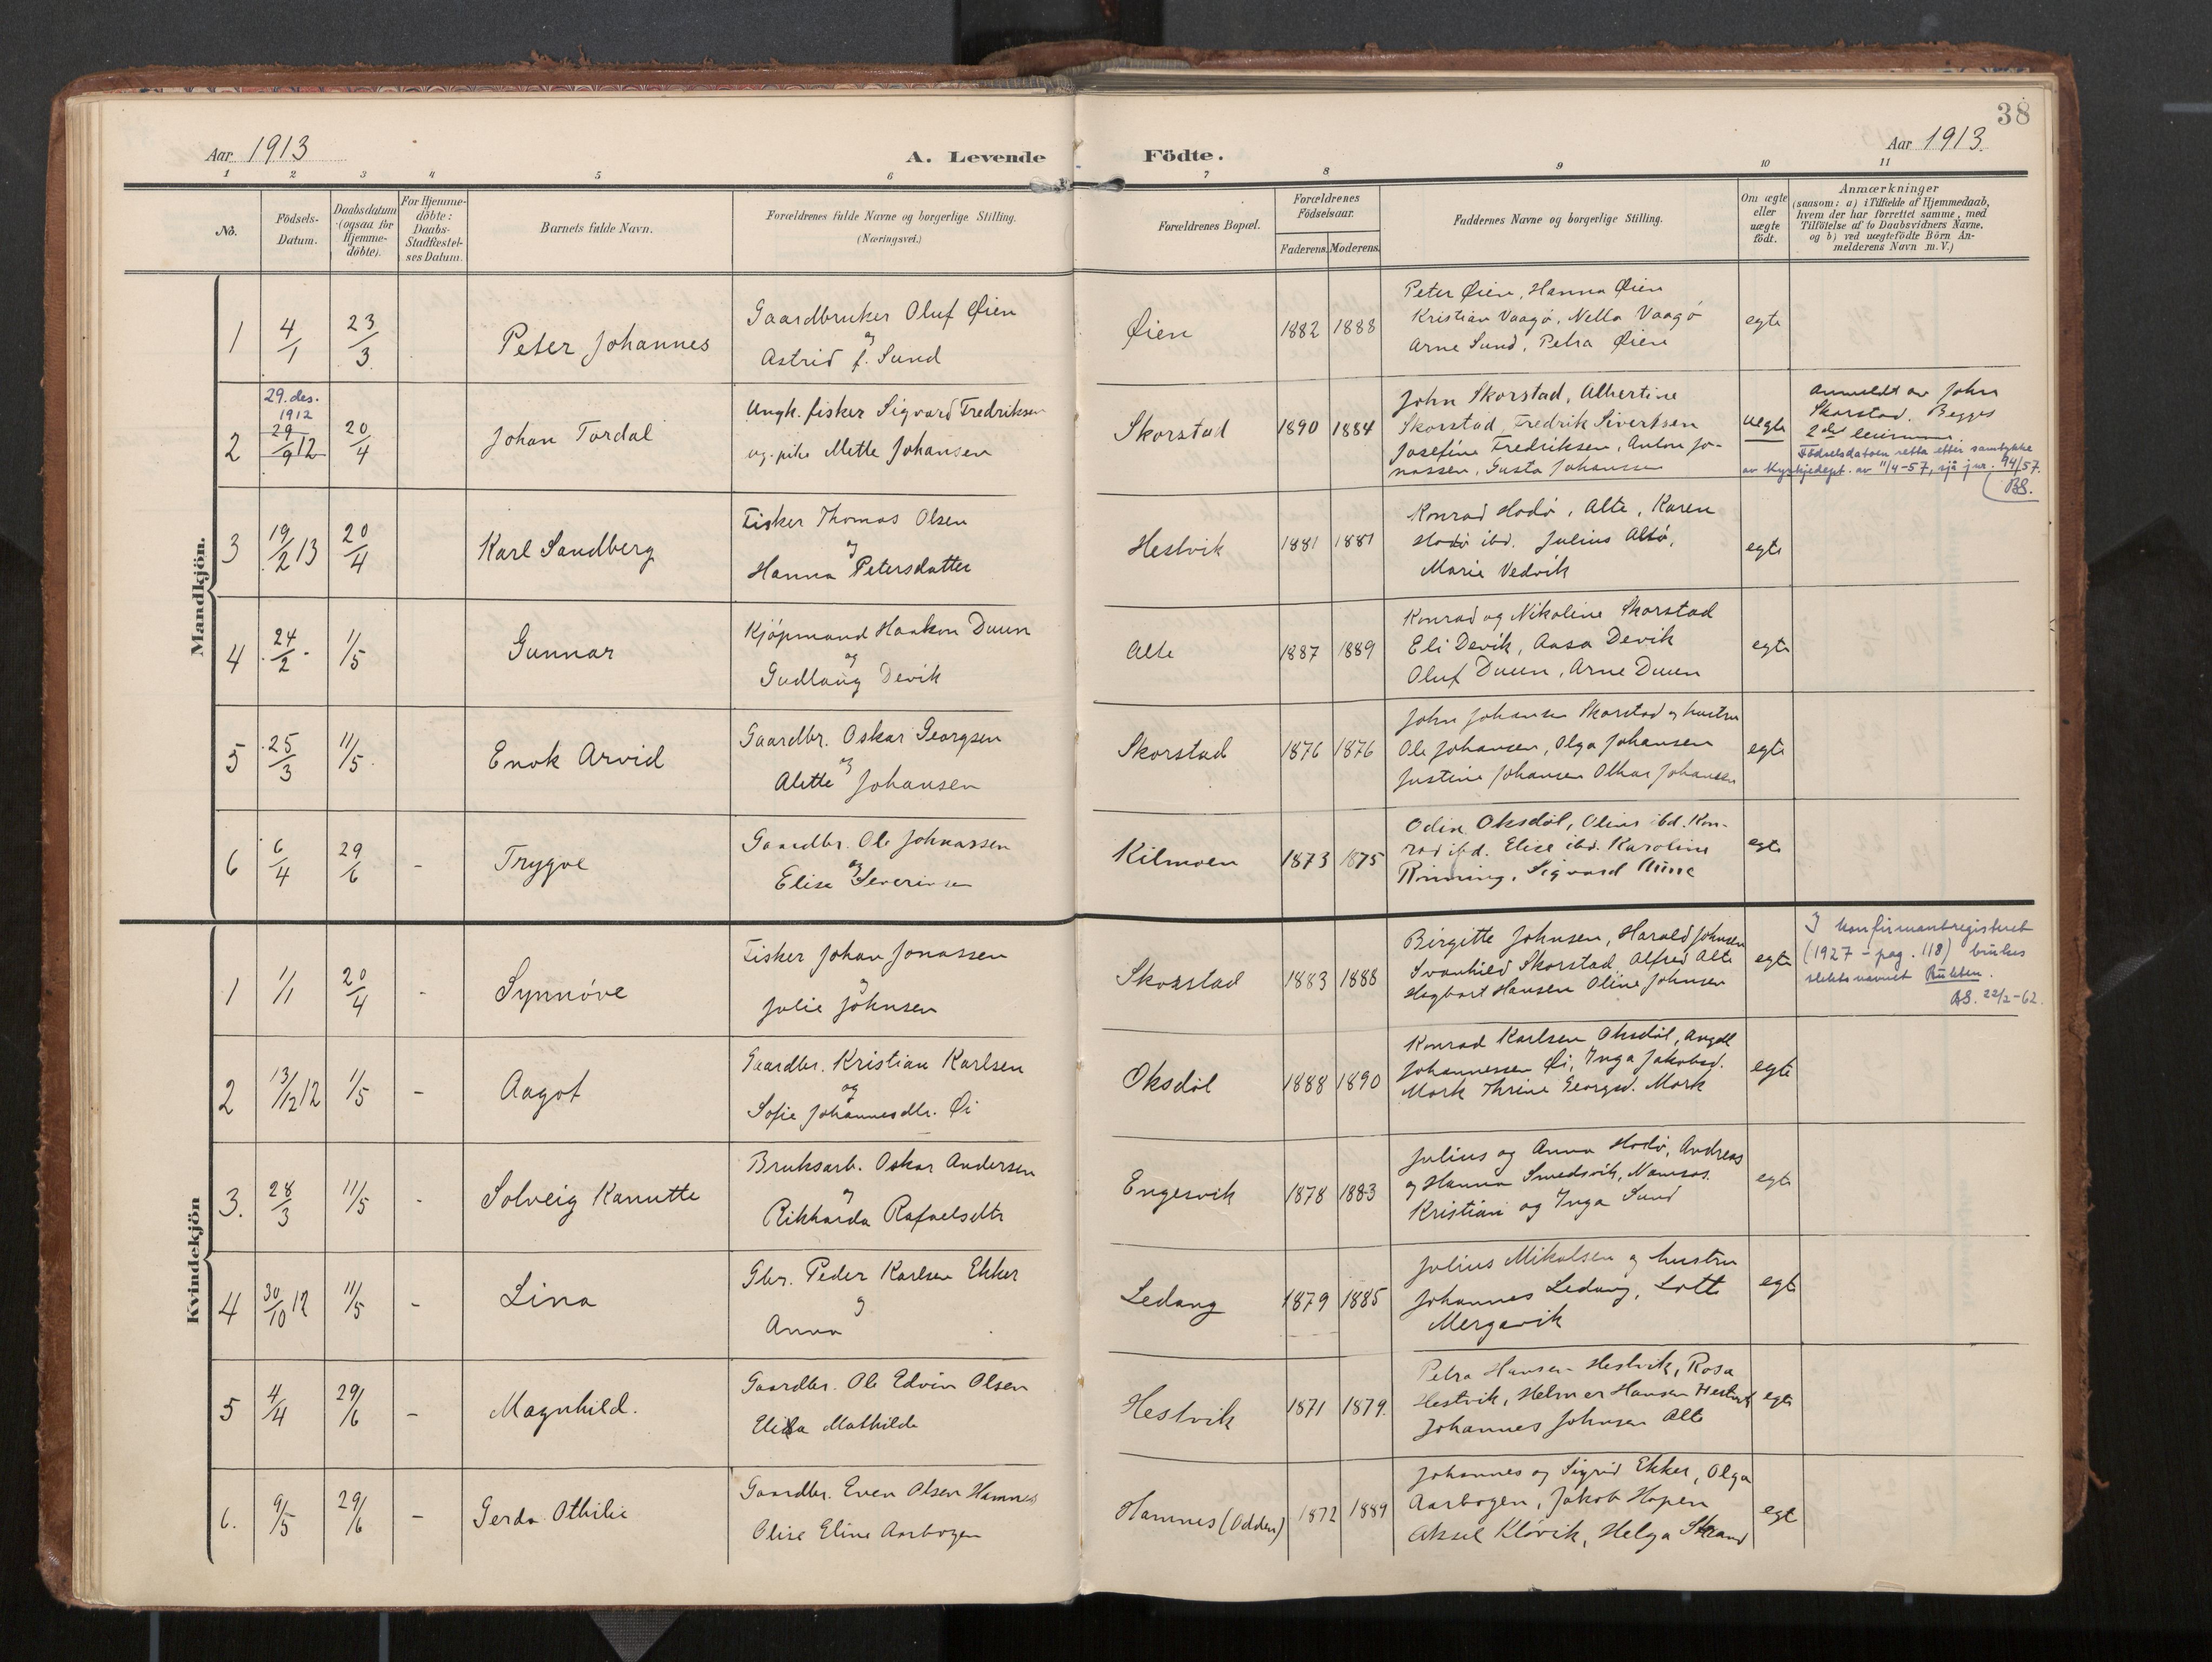 38
Aar 1913
A. Levende
Födte.
Aar 1913.
1 2 3 4 5 6 7 8 9 10 11
No.
Födsels-
Datum.
Daabsdatum
(ogsaa for
Hjemme-
döbte).
For Hjemme-
döbte:
Daabs-
Stadfæstel-
ses Datum.
Barnets fulde Navn.
Forældrenes fulde Navne og borgerlige Stilling.
(Næringsvei.)
Forældrenes Bopæl.
Forældrenes
Födselsaar.
Faderens. Moderens.
Faddernes Navne og borgerlige Stilling.
Om ægte
eller
uægte
födt.
Anmærkninger
(saasom: a) i Tilfælde af Hjemmedaab,
hvem der har forrettet samme, med
Tilföielse af to Daabsvidners Navne.
og b) ved uægtefödte Börn An-
melderens Navn m. V.)
Mandkjön.
1 4/1 23/3 Peter Johannes
Gaardbruker Oluf Øien
og
Astrid f. Sund
Øien 1882 1888
Peter Øien, Hanna Øien
Kristian Vaagö, Nella Vaagö
Arne Sund, Petra Øien
egte
29. des.
1912
2 29/9 12 20/4 Johan Tordal
Ungk. fisker Sigvard Fredriksen
og pike Mette Johansen
Skorstad 1890 1884
John Skorstad, Albertine
Skorstad, Fredrik Sivertsen
Josefine Fredriksen, Anton Jo-
nassen, Gusta Johansen
uegte
Anmeldt av John
Skorstad. Begges
2det
Födselsdatoen retta etter samtykke
av Kyrkjedept. av 11/4-57, sjå jnr. 94/57.
BS.
3 19/2 13 20/4 Karl Sandberg
Fisker Thomas Olsen
og
Hanna Petersdatter
Hestvik 1881 1881
Konrad Hodö, Alte, Karen
Hodö ibd. Julius Altö,
Marie Vedvik
egte
4 24/2 1/5 Gunnar
Kjöpmand Haakon Duun
og
Gudlaug Devik
Alte 1887 1889
Konrad og Nikoline Skorstad
Eli Devik, Aasa Devik
Oluf Duun, Arne Duun
egte
5 25/3 11/5 Enok Arvid
Gaardbr. Oskar Georgsen
og
Alette Johansen
Skorstad 1876 1876
John Johansen Skorstad og hustru
Ole Johansen, Olga Johansen
Justine Johansen Johansen
egte
6 6/4 29/6 - Trygve
Gaardbr. Ole Johnassen
og
Elise Severinsen
Kilmoen 1873 1875
Odin Oksdöl, Olius ibd. Kon-
rad ibd. Elise ibd. Karoline
Rinning, Sigvard
egte
Kvindekjön
1 1/1 20/4 - Synnöve
Fisker Johan Jonassen
og
Julie Johnsen
Skorstad 1883 1888
Birgitte Johnsen, Harald Johnsen
Svanhild Skorstad, Alfred Alte
Hagbart Hansen Oline Johnsen
egte
I konfirmantregisteret
(1927 - pag. 118) brukes
slektsnavnet
BS. 22/2-62.
2 13/12 12 1/5 - Aagot
Gaardbr. Kristian Karlsen
og
Sofie Johannesdtr. Øi
Oksdöl 1888 1890
Konrad Karlsen Oksdöl, Angell
Johannessen Øi, Inga Jakobsd.
Mork Thrine Georgsd. Mork
egte
3. 28/3 11/5 - Solveig Kanutte
Bruksarb. Oskar Andersen
og
Rikharda Rafaelsdtr
Engesvik 1878 1883
Julius og Anna Hodö, Andreas
og Hanna Smedsvik, Namsos.
Kristian og Inga Sund
egte
4 30/10 12 11/5 - Lina
Gbr. Peder Karlsen Ekker
og
Anna
Ledang 1879 1885
Julius Mikalsen og hustru
Johannes Ledang, Lotte
Mergavik
egte
5 4/4 29/6 - Magnhild.
Gaardbr. Ole Edvin Olsen
Mathilde
Hestvik 1871 1879.
Petra Hansen Hestvik, Rosa
Hestvik, Helmer Hansen Hestvik
Johannes Johnsen Alte
egte
6. 9/5 29/6 - Gerda Othilie
Gaardbr. Even Olsen Hamnes
Olise Eline Aarbogen
Hamnes (Odden) 1872 1889
Johannes og Sigrid Ekker, Olga
Aarbogen, Jakob Hopen
Aksel Klövik, Helga Strand
egte